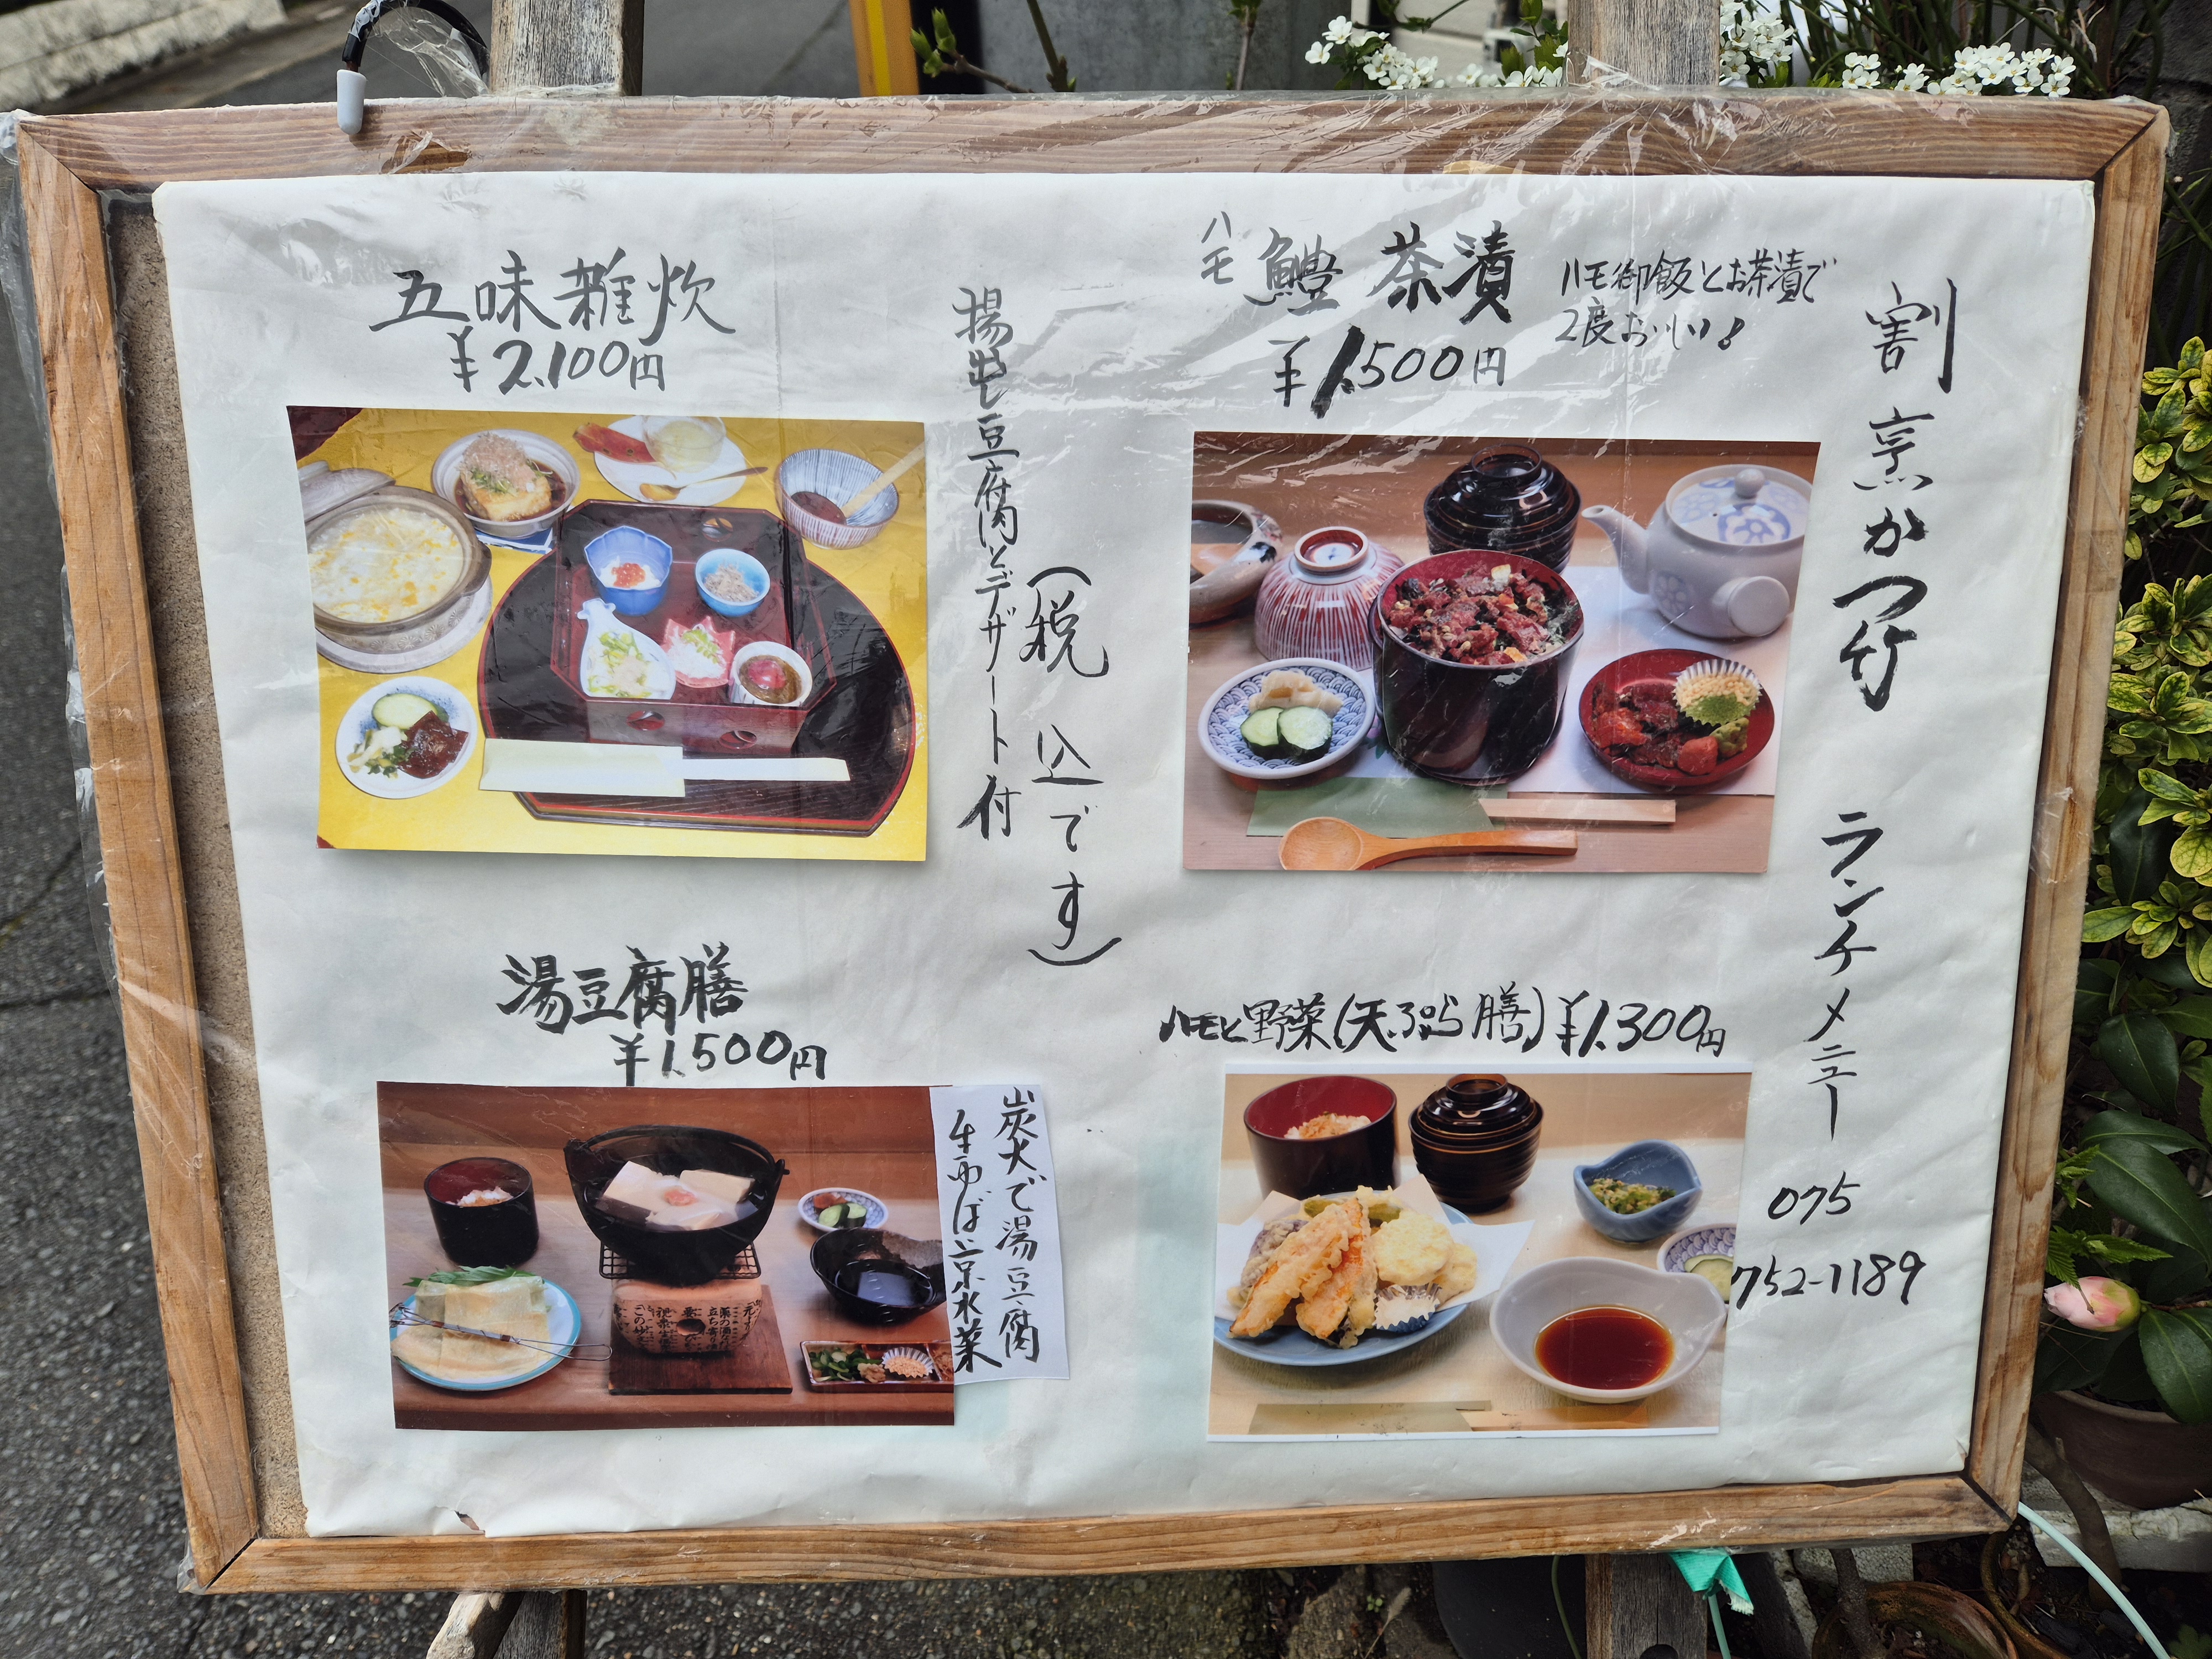 割烹かつ竹 ランチメニュー
075
752-1189
ハモ
鱧茶漬
ハモ御飯とお茶漬で
2度おいしい!
¥1,500円
ハモと野菜(天ぷら膳)¥1,300円
五味雑炊
¥2,100円
揚出し豆腐とデザート付
(税込です)
湯豆腐膳
¥1,500円
炭火で湯豆腐
生ゆば・京水菜